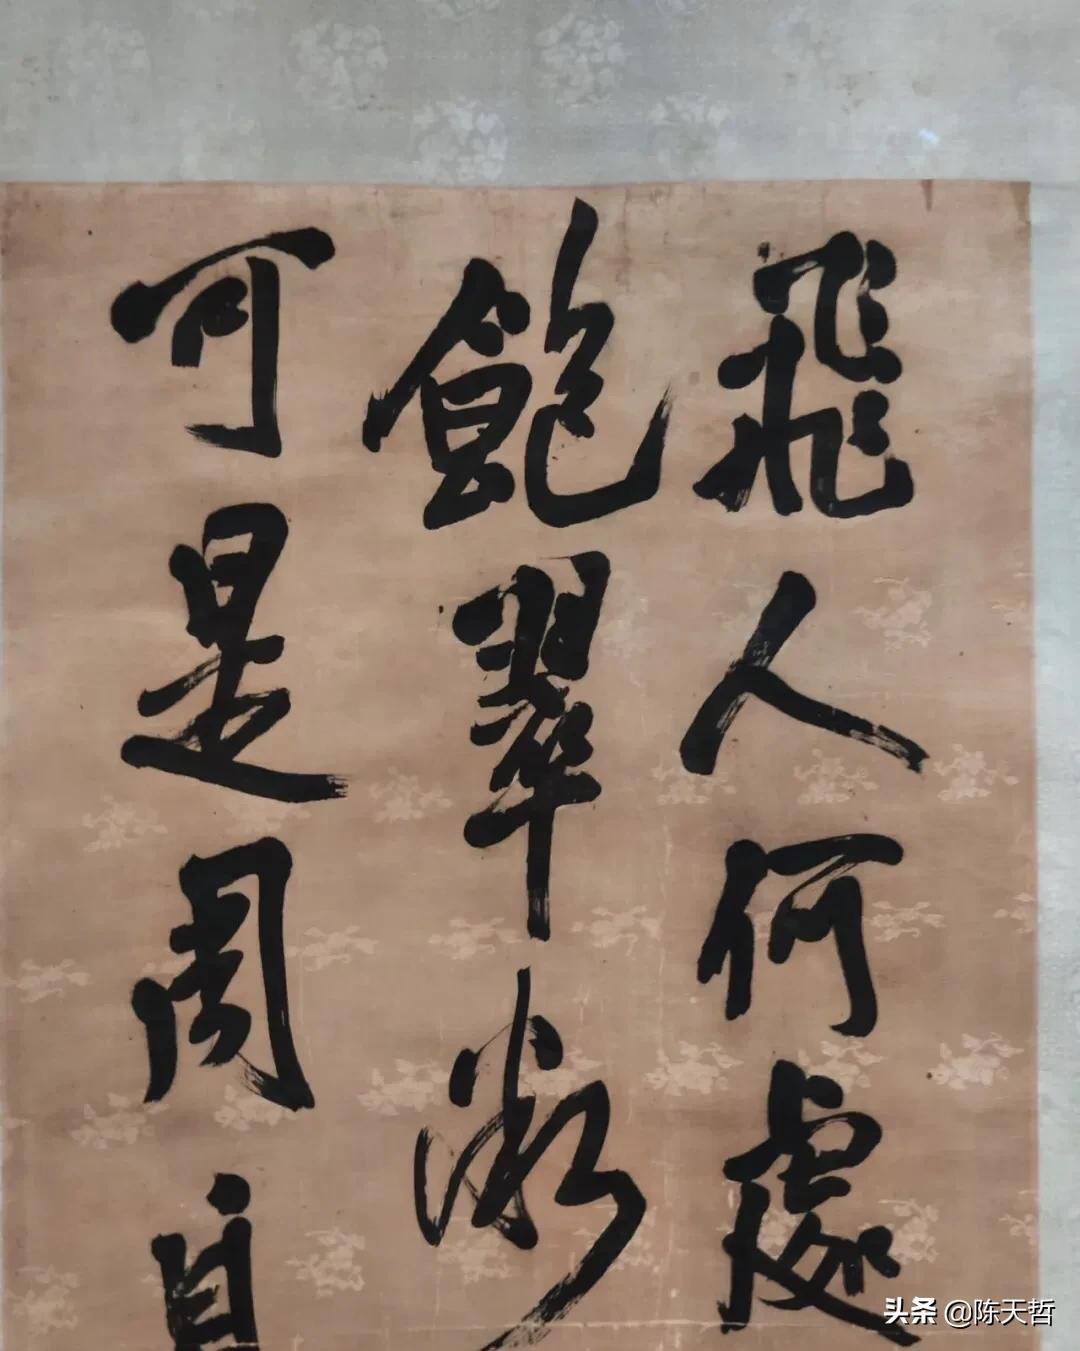 飛人何處
飽翠
可是周
头条 @陈天哲